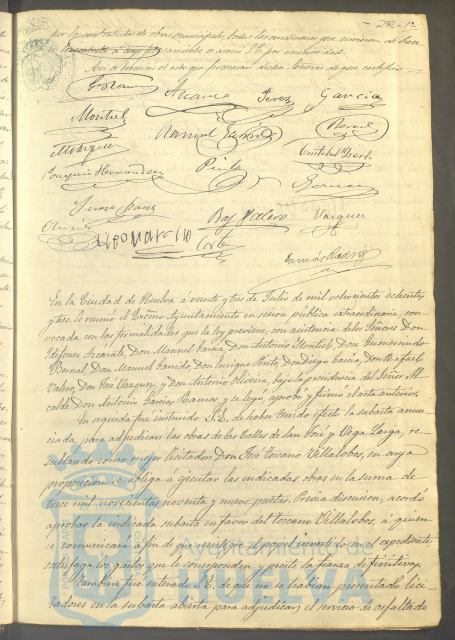 - 272-1º
por la contratista de obras municipales, todas las condiciones que
Así se terminó el acto que firmaron dichos Señores de que certifico
Garcia
Perez
Montiel
Manuel Garrido
Bernal
Marquez
Joaquin Hernandez
Pinto
Cristobal
Olivera
Vazquez
Corte
En la Ciudad de Huelva á veinte y tres de Julio de mil ochocientos ochenta
y tres. Se reunió el Excmo Ayuntamiento en sesion pública extraordinaria, con-
vocada con las formalidades que la ley previene, con asistencia de los Señores Don
Ildefonso Alcárate, Don Manuel Garcia, Don Antonio Montiel, Don Gumersindo
Bernal, Don Manuel Garrido, Don Enrique Pinto, Don Diego Garcia, Don Rafael
Valero, Don José Vazquez, y Don Antonio Olivera, bajo la presidencia del Señor Al-
calde Don Antonio Garcia Ramos, y se leyó, aprobó y firmó el acta anterior.
En seguida fué instruido S.E. de haber tenido efecto la subasta anun-
ciada para adjudicar las obras de las Calles de San José y Vega Larga, re-
sultando como mejor licitador Don José Toscano Villalobos, en cuya
proposicion se obliga a ejecutar las indicadas obras en la suma de
tres mil novecientas noventa y nueve pesetas. Previa discusion, acordó
aprobar la indicada subasta en favor del Toscano Villalobos, á quien
se comunicará á fin de que reintegre el papel invertido en el expediente
satisfaga los gastos que le corresponden y preste la fianza definitiva.
Tambien fué enterado S.E. de que no se habian presentado lici-
tadores en la subasta abierta para adjudicar el servicio de asfaltado
Ayuntamiento de
HUELVA